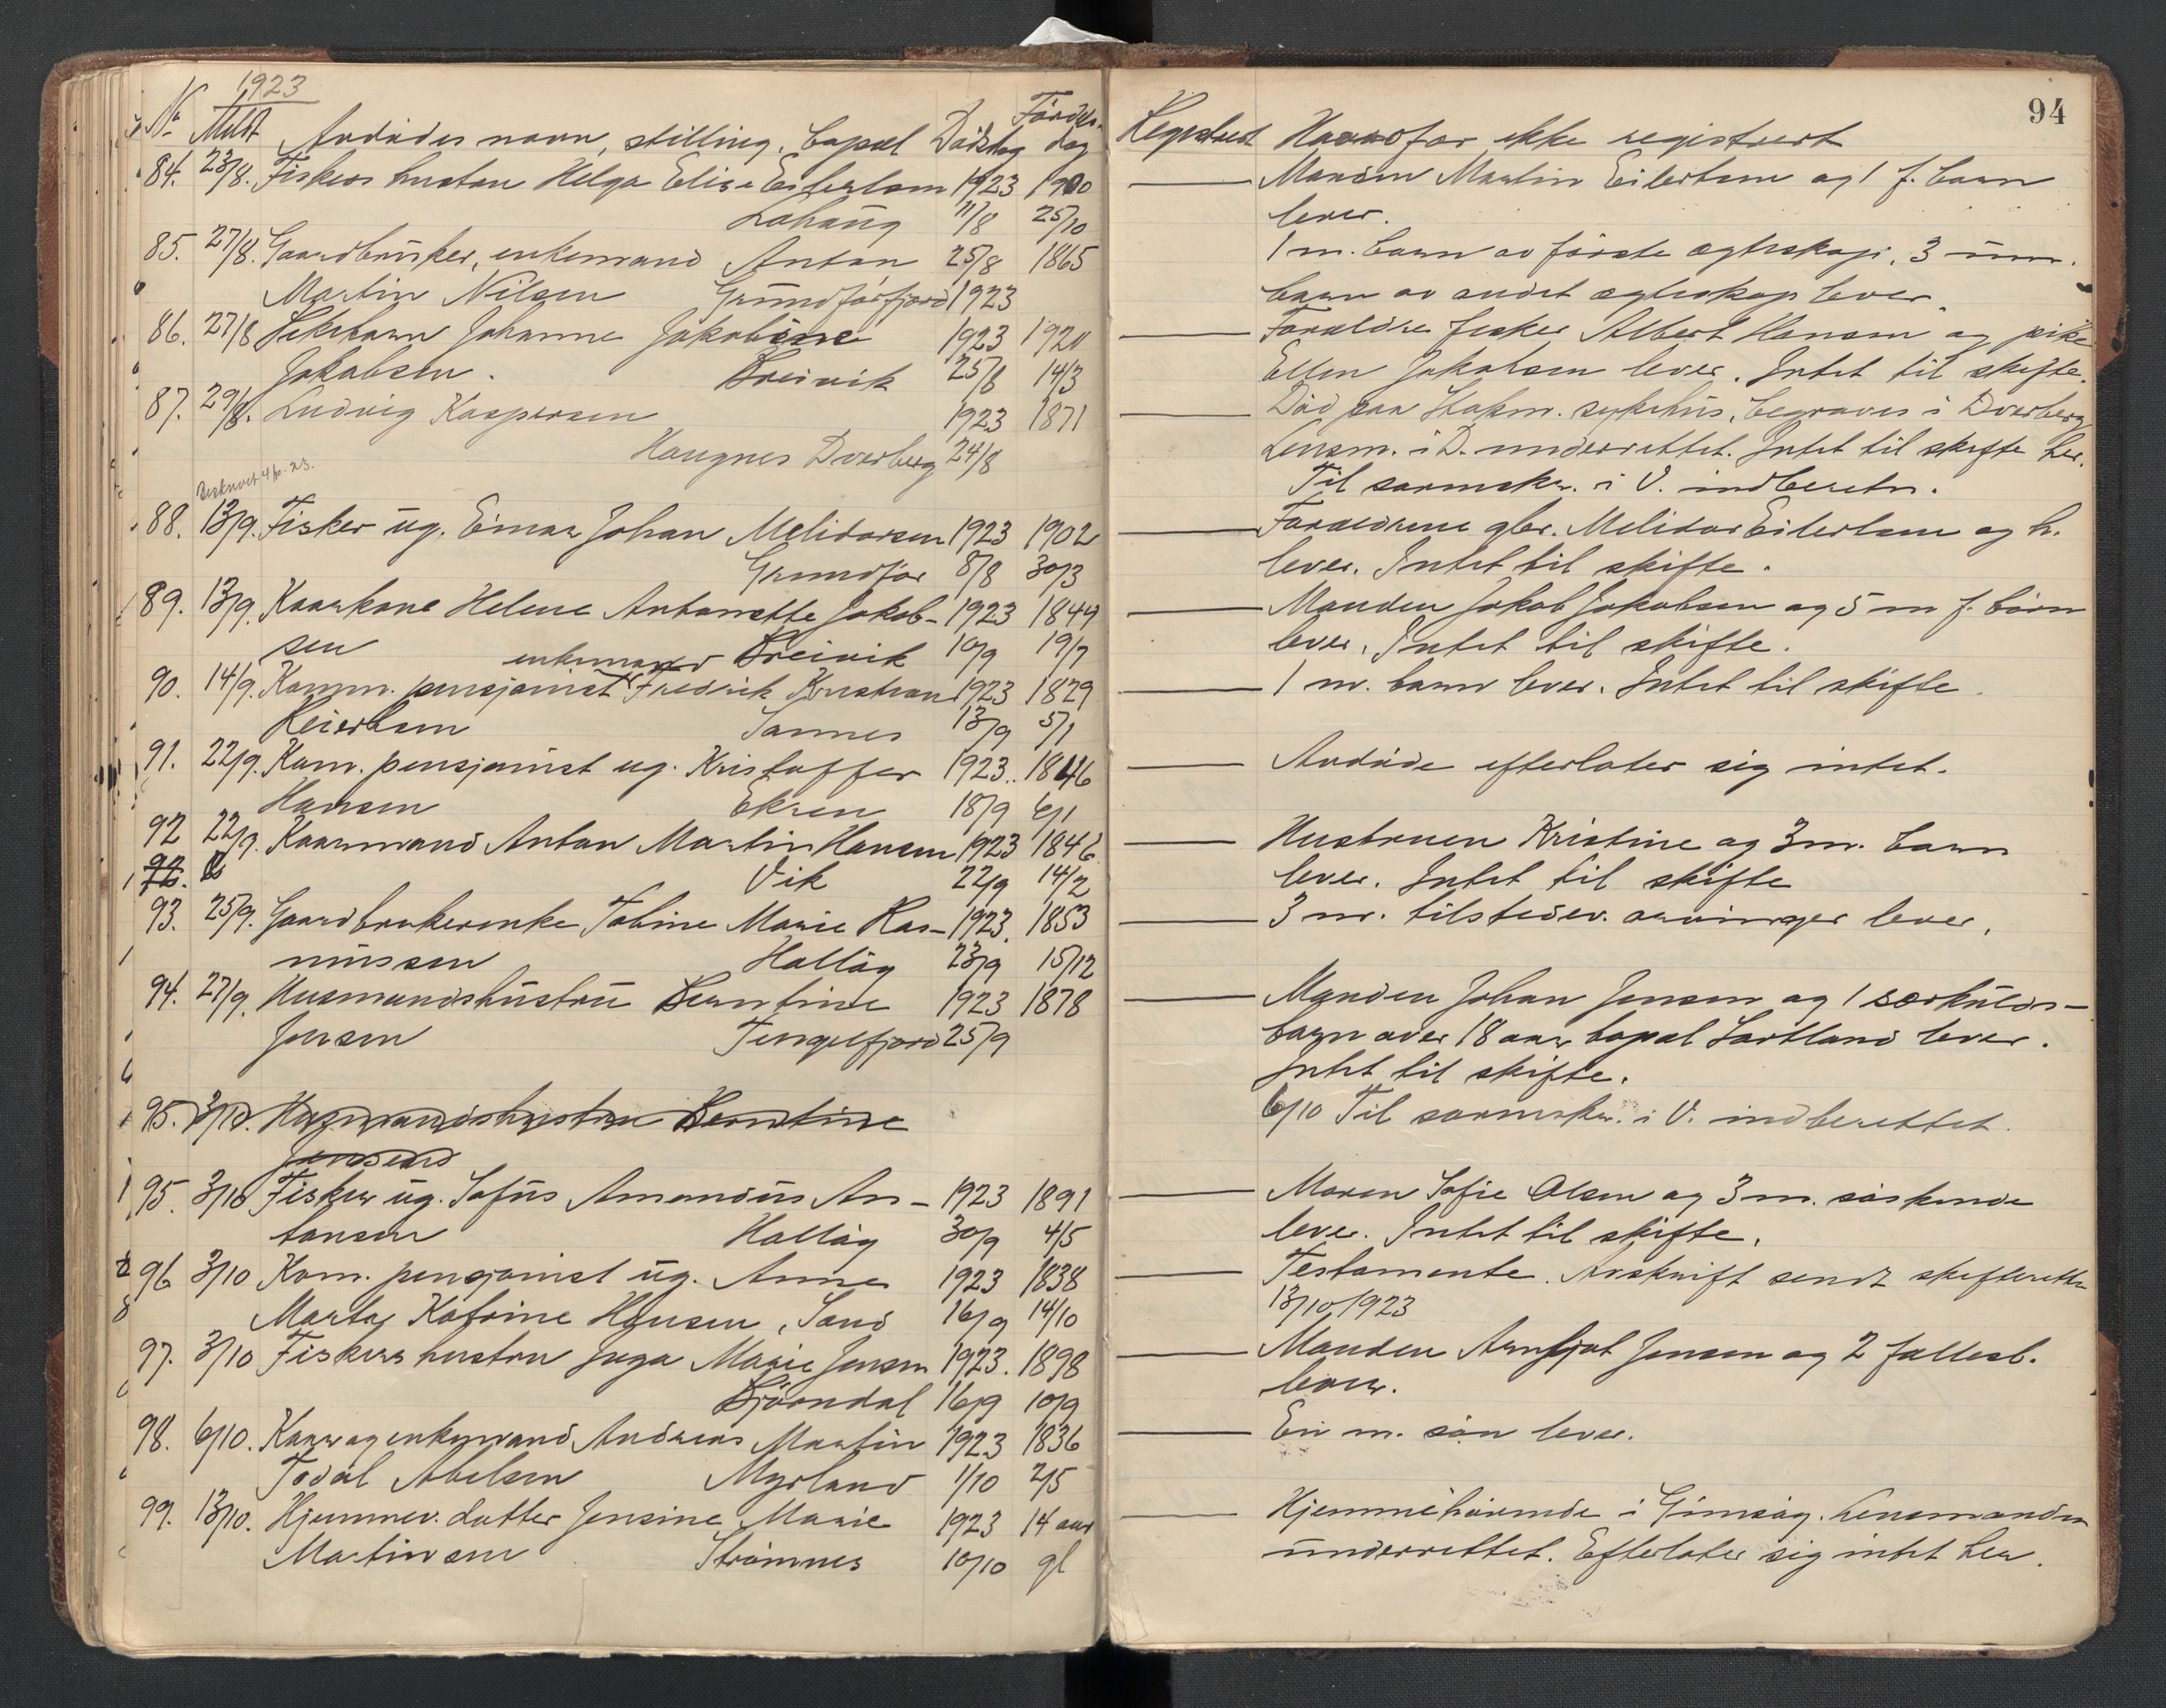 1923
No Meldt Avdødes navn, stilling, bopæl Dødsdag Fødsels-
dag
84. 23/8. Fiskers hustru Helga Elise Eilertsen 1923 1900
Lahaug 11/8 25/10
85. 27/8. Gaardbruker, enkemand Anton 25/8 1865
Martin Nilsen Grundførfjord 1923
86. 27/8 Pikebarn Johanne Jakobine 1923 1920
Jakobsen. Breivik 25/8 14/3
87. 29/8. Ludvig Kaspersen 1923 1871
Haugnes Dverberg 24/8
Beskrevet 4/10-23.
88. 13/9. Fisker ug. Einar Johan Melidorsen 1923 1902
Grundfør 8/8 30/3
89. 13/9. Kaarkone Helene Antonette Jakob- 1923 1849
sen Breivik 10/9 19/7
90. 14/9. Komm. pensjonist enkemand Fredrik Kristian 1923 1829
Reiertsen Sannes 13/9 5/1
91. 22/9. Kom. pensjonist ug. Kristoffer 1923. 1846
Hansen Ekren 18/9 6/1
92 22/9. Kaarmand Anton Martin Hansen 1923 1846
92. Vik 22/9 14/2
93. 25/9. Gaardbrukerenke Tobine Marie Ras- 1923. 1853
mussen Hallåg 23/9 15/12
94. 27/9. Husmandshustru Berntine 1923 1878
Jensen Tengelfjord 25/9
95. 3/10. Husmandshustru Berntine
Jensen
95. 3/10 Fisker ug. Sofus Amandus An- 1923 1891
tonsen Hallåg 30/9 4/5
96 3/10 Kom. pensjonist ug. Anne 1923 1838
Marta Katrine Hansen, Sand 16/9 14/10
97. 3/10 Fiskers hustru Inga Marie Jensen 1923. 1898
Bjørndal 16/9 10/9
98. 6/10. Kaar og enkemand Andreas Martin 1923 1836
Todal Abelsen Myrland 1/10 2/5
99. 13/10. Hjemmev. datter Jensine Marie 1923 14 aar
Martinsen Strømnes 10/10 gl
94
Registrert Hvorfor ikke registrert
Manden Martin Eilertsen og 1 f. barn
lever.
1 m. barn av første ægteskap, 3 um.
barn av andet ægteskap lever.
Forældre fisker Albert Hansen og pike
Ellen Jakobsen lever. Intet til skifte.
Død paa Stokm. sykehus, begraves i Dverberg
Lensm. i D. underrettet. Intet til skifte her.
Til sorenskr. i V. indberetn.
Forældrene gbr. Melidor Eilertsen og h.
lever. Intet til skifte.
Manden Jakob Jakobsen og 5 m f. børn
lever. Intet til skifte.
1 m. barn lever. Intet til skifte.
Avdøde efterlater sig intet.
Hustruen Kristine og 3 m. barn
lever. Intet til skifte
3 m. tilstedev. arvinger lever.
Manden Johan Jensen og 1 særkulds-
barn over 18 aar bopæl Sortland lever.
Intet til skifte.
6/10 Til sorenskr. i V. indberettet.
Moren Sofie Olsen og 3 m. søskende
lever. Intet til skifte.
Testamente. Avskrift sendt skifteretten
13/10 1923
Manden Arnljot Jensen og 2 fællesb.
lever.
En m. søn lever.
Hjemmehørende i Gimsøy. Lensmanden
underrettet. Efterlater sig intet her.